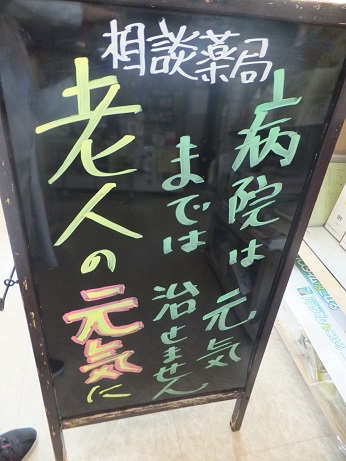 相談薬局
病院は元気
までは治せません
老人の元気に